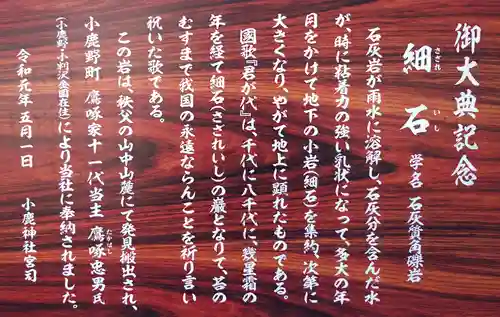 御大典記念
細石
さざれ いし
学名 石灰質角礫岩
石灰岩が雨水に溶解し、石灰分を含んだ水
が、時に粘着力の強い乳状になって、多大の年
月をかけて地下の小岩(細石)を集約、次第に
大きくなり、やがて地上に顕れたものである。
國歌『君が代』は、千代に八千代に、幾星霜の
年を経て細石(さざれいし)の巌となりて、苔の
むすまで我国の永遠ならんことを祈り言い
祝いた歌である。
この岩は、秩父の山中山麓にて発見搬出され、
小鹿野町 鷹啄家十一代当主 鷹啄忠男氏
たかはし
(小鹿野・小判沢金園在住)により当社に奉納されました。
令和元年五月一日
小鹿神社宮司